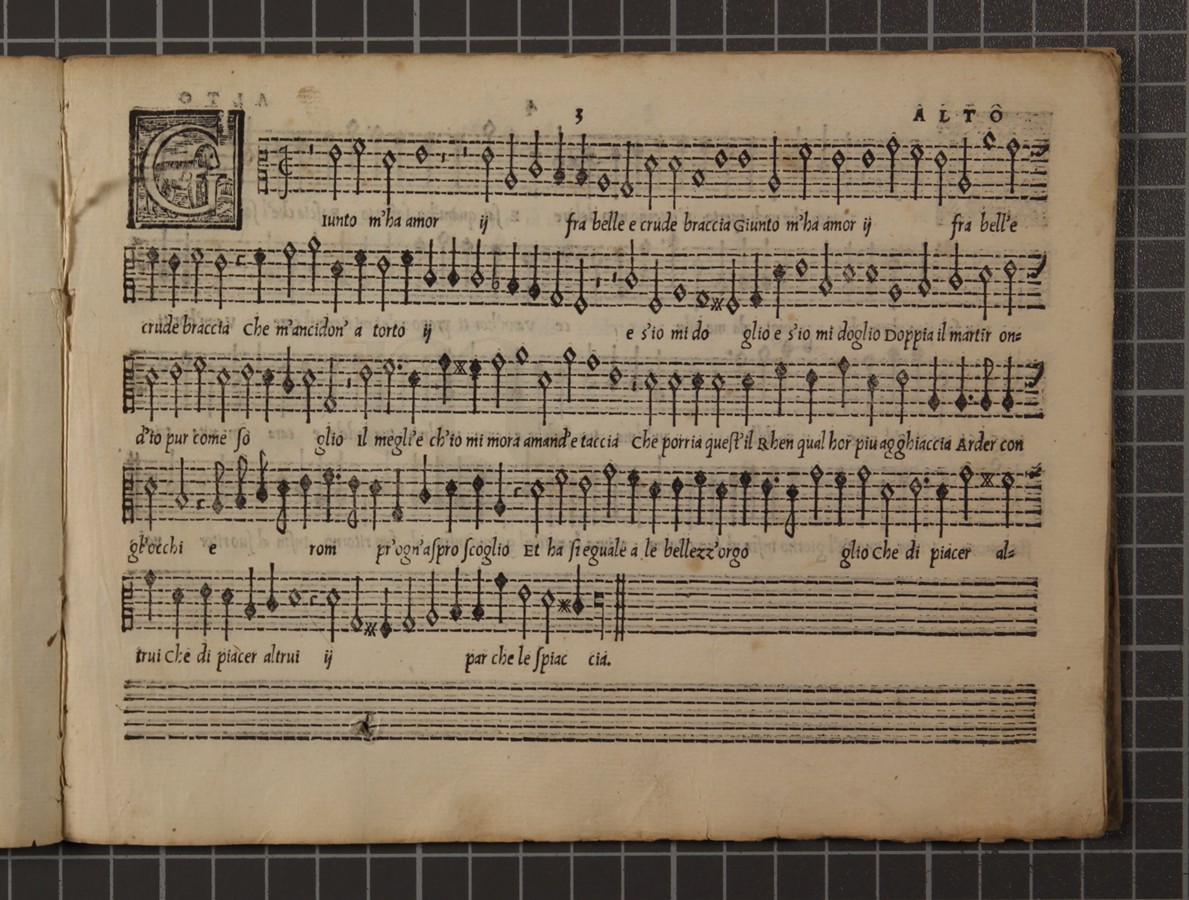 3 ALTO
G iunto m'ha amor ij fra belle e crude braccia Giunto m'ha amor ij fra bell'e
crude braccia Che m'ancidon' a torto ij e s'io mi do glio e s'io mi doglio Doppia il martir on=
d'io pur come so glio Il megli'e ch'io mi mora amand'e taccia Che porria quest'il Rhen qual hor piu agghiaccia Arder con
gl'occhi e rom pr'ogn'aspro scoglio Et ha si eguale a le bellezz'orgo glio Che di piacer al=
trui Che di piacer altrui ij par che le spiac cia.